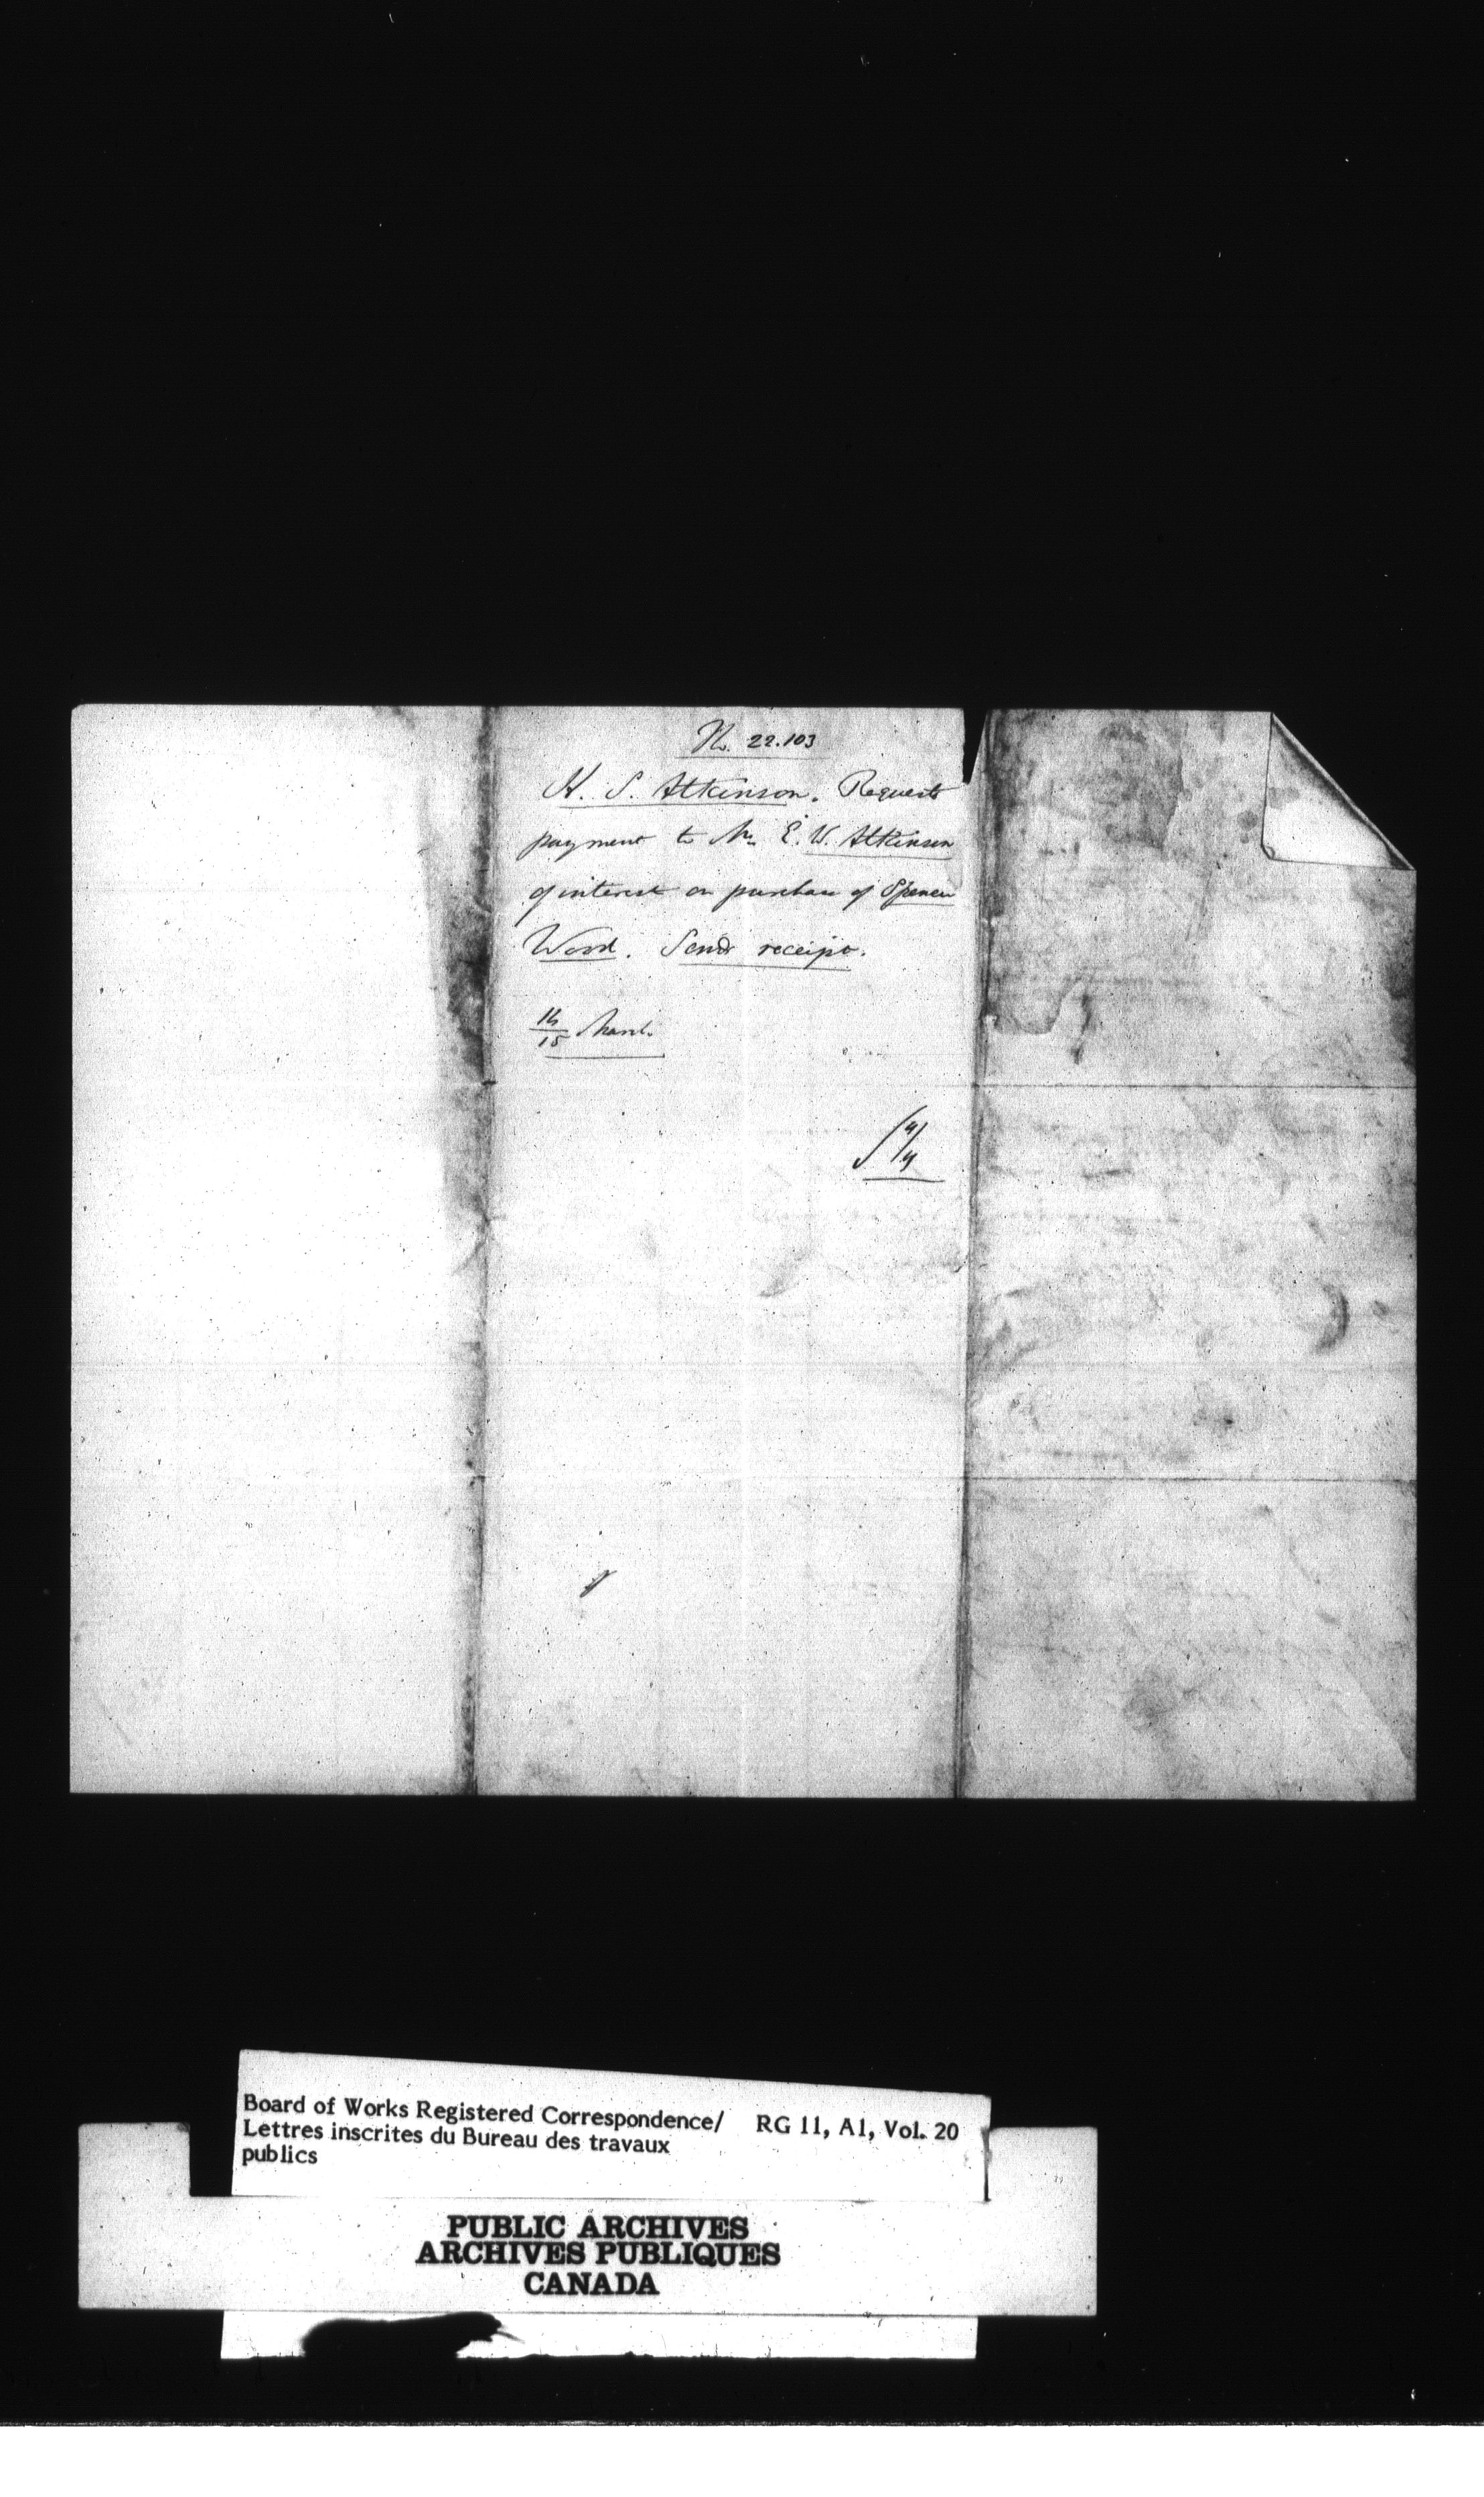 No. 22.103
H. S. Atkinson. Requests
payment to Mr. E. W. Atkinson
of interest on purchase of Spencer
Wood. Sends receipt.
16/15 March.
Board of Works Registered Correspondence/ RG 11, A1, Vol. 20
Lettres inscrites du Bureau des travaux
publics
PUBLIC ARCHIVES
ARCHIVES PUBLIQUES
CANADA